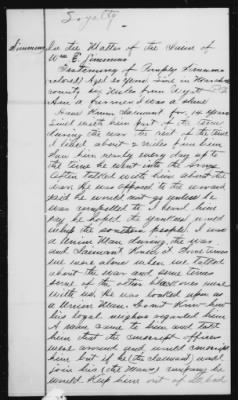 Loyalty
Simmons
In the Matter of the Claim of
Wm E. Simmons
Testimony of Simmons
colored Aged 50 years, live in
county six miles from Wyatt
Am a farmer I was a slave
Have known Claimant for 14 years
lived with him part of the time
during the war the rest of the time
I lived about 2 miles from him
Saw him nearly every day up to
the time he went into the army
Often talked with him about the
war He was opposed to the war and
said he would not go unless he
was compelled to I have heard him
say he hoped the Yankees would
whip the southern people. I was
a Union Man during the war
and Claimant knew it Some times
we were alone when we talked
about the war and some times
some of the other black ones were
with us. He was looked upon as
a Union Man Know how
his loyal neighbors regarded him
A man came to him and told
him that the conscript officers
were around and would conscript
him but if he (the claimant) would
join his (the Man's) company he
would keep him out of